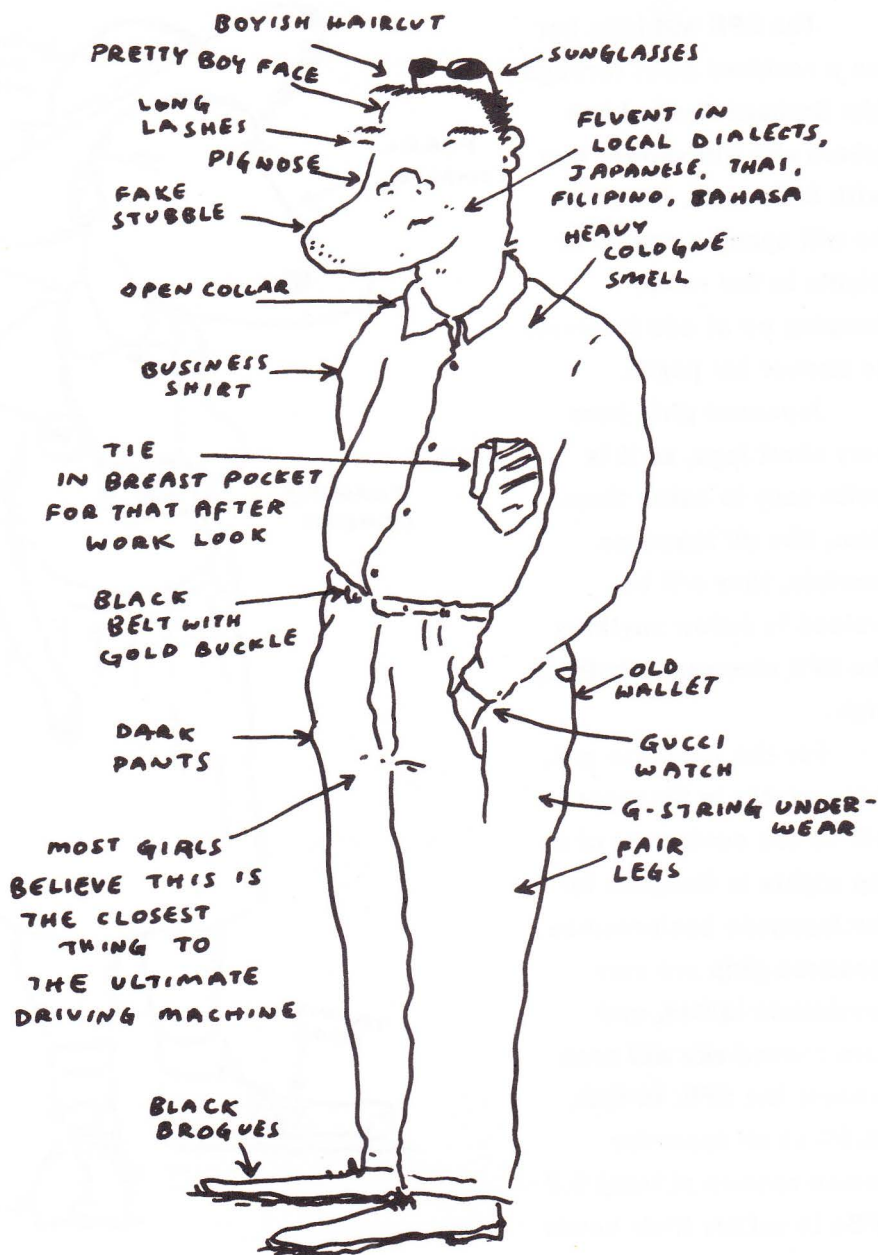 BOYISH HAIRCUT
PRETTY BOY FACE
SUNGLASSES
LONG
LASHES
PIGNOSE
FAKE
STUBBLE
FLUENT IN
LOCAL DIALECTS,
JAPANESE, THAI,
FILIPINO, BAHASA
HEAVY
COLOGNE
SMELL
OPEN COLLAR
BUSINESS
SHIRT
TIE
IN BREAST POCKET
FOR THAT AFTER
WORK LOOK
BLACK
BELT WITH
GOLD BUCKLE
OLD
WALLET
DARK
PANTS
GUCCI
WATCH
G-STRING UNDER-
WEAR
FAIR
LEGS
MOST GIRLS
BELIEVE THIS IS
THE CLOSEST
THING TO
THE ULTIMATE
DRIVING MACHINE
BLACK
BROGUES